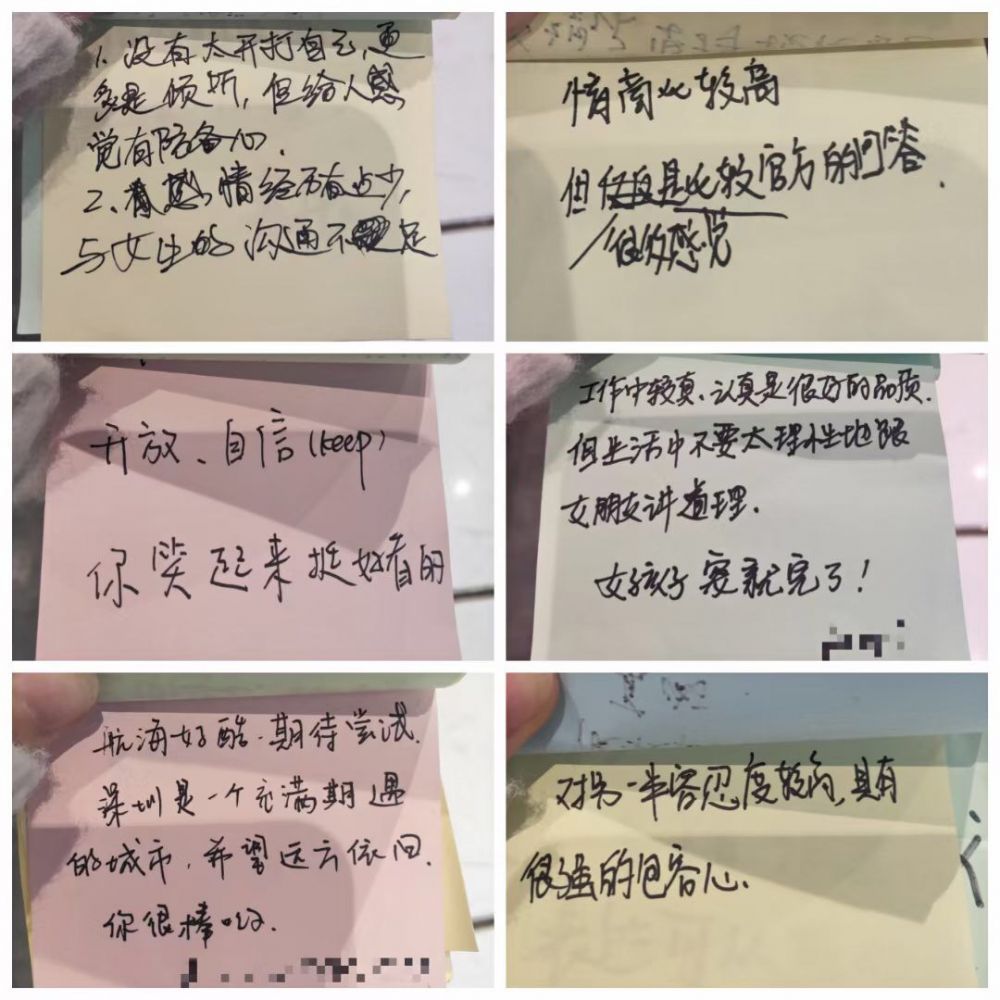 1、没有太开打自己,更
多是倾听,但给人感
觉有防备心.
2、感情经历有点少,
与女生的沟通不足
情商比较高
但是比较官方的回答.
的感觉
开放、自信(keep)
你笑起来挺好看的
工作中较真、认真是很好的品质.
但生活中不要太理性地跟
女朋友讲道理.
女孩子要就完了!
航海好酷.期待尝试.
深圳是一个充满期遇
的城市,希望远方依旧.
你很棒哟.
对另一半容忍度较高,具有
很强的包容心.